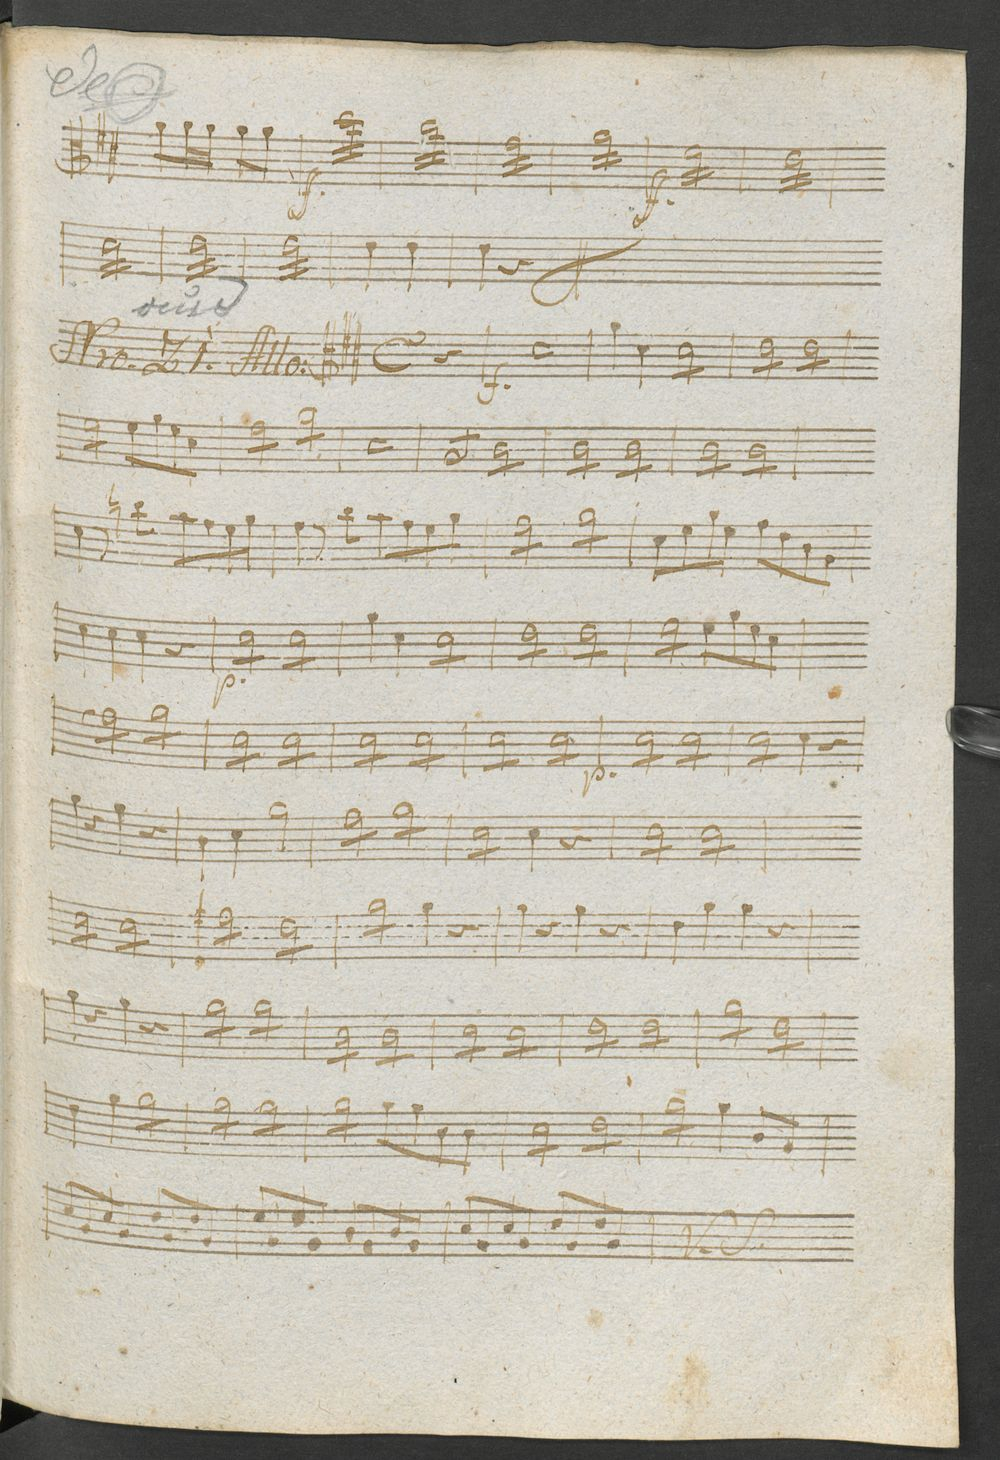 f. f.
Nro. 21. Allo: f.
p.
p.
V. S.